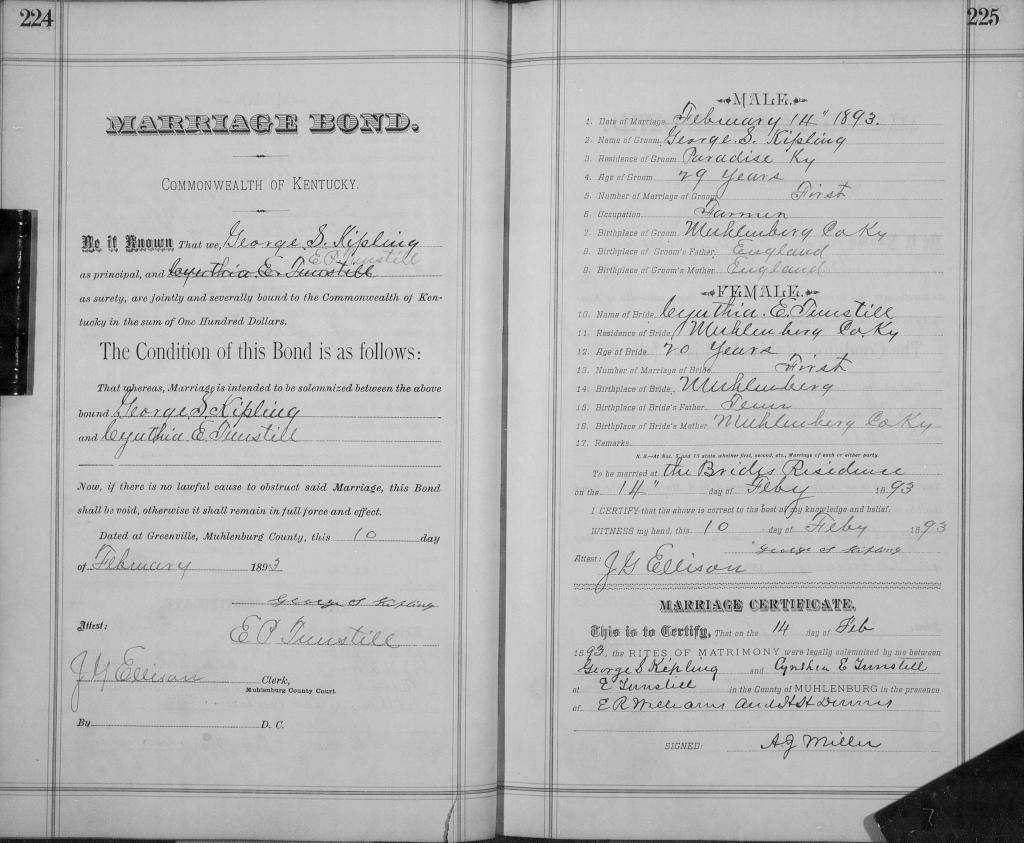 224
MARRIAGE BOND.
COMMONWEALTH OF KENTUCKY.
Be it Known That we, George S. Kipling
E P Tunstill
as principal, and Cynthia E. Tunstill
as surety, are jointly and severally bound to the Commonwealth of Ken-
tucky in the sum of One Hundred Dollars.
The Condition of this Bond is as follows:
That whereas, Marriage is intended to be solemnized between the above
bound George S. Kipling
and Cynthia E. Tunstill
Now, if there is no lawful cause to obstruct said Marriage, this Bond
shall be void, otherwise it shall remain in full force and effect.
Dated at Greenville, Muhlenburg County, this 10 day
of February 1893
George S Kipling
Attest: E P Tunstill
J G Ellison Clerk,
Muhlenburg County Court.
By D. C.
225
MALE.
1. Date of Marriage February 14" 1893.
2. Name of Groom George. S. Kipling
3. Residence of Groom Paradise Ky
4. Age of Groom 29 Years
5. Number of Marriage of Groom First
6. Occupation Farmer
7. Birthplace of Groom Muhlenberg Co Ky
8. Birthplace of Groom's Father England
9. Birthplace of Groom's Mother England
FEMALE.
10. Name of Bride Cynthia. E. Tunstill
11. Residence of Bride Muhlenberg Co. Ky
12. Age of Bride 20 Years
13. Number of Marriage of Bride First
14. Birthplace of Bride Muhlenberg
15. Birthplace of Bride's Father Tenn
16. Birthplace of Bride's Mother Muhlenberg Co Ky
17. Remarks
N. B.—At Nos. 5 and 13 state whether first, second, etc., Marriage of each or either party.
To be married at the Brides Residence
on the 14" day of Feby 1893
I CERTIFY that the above is correct to the best of my knowledge and belief.
WITNESS my hand, this 10 day of Feby 1893
George S Kipling
Attest: J G Ellison
MARRIAGE CERTIFICATE.
This is to Certify, That on the 14 day of Feb
1893, the RITES OF MATRIMONY were legally solemnized by me between
George S Kipling and Cynthia E Tunstill
at E Tunstill in the County of MUHLENBURG in the presence
of E R Williams and H H Dennis
SIGNED: A J Miller
7